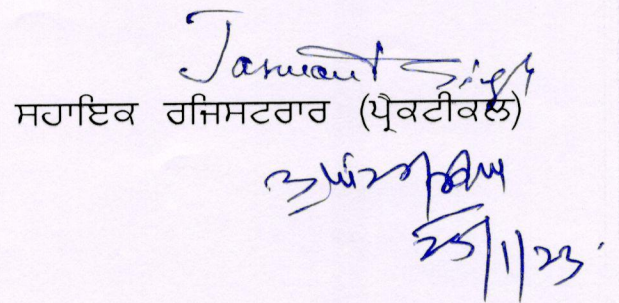 Jaswant Singh
ਸਹਾਇਕ ਰਜਿਸਟਰਾਰ (ਪ੍ਰੈਕਟੀਕਲ)
25/1/23